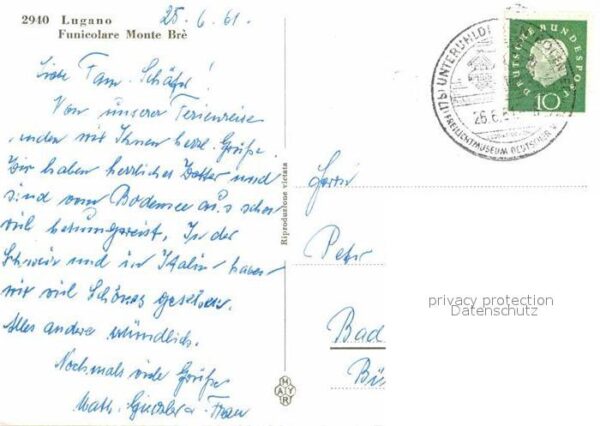 2940 Lugano
Funicolare Monte Brè
25.6.61.
Liebe Fam. Schäfer!
Von unserer Ferienreise
senden wir Ihnen herzl. Grüße.
Wir haben herrliches Wetter und
sind vom Bodensee aus schon
viel herumgereist. In der
Schweiz und in Italien haben
wir viel Schönes gesehen.
Alles andere mündlich.
Nochmals viele Grüße
Math. u. Frau
Riproduzione vietata
MAYR
(17b) UNTERUHLDINGEN
26.6.61
FREILICHTMUSEUM DEUTSCHER
DEUTSCHE BUNDESPOST
10
Peter
Bad
privacy protection
Datenschutz